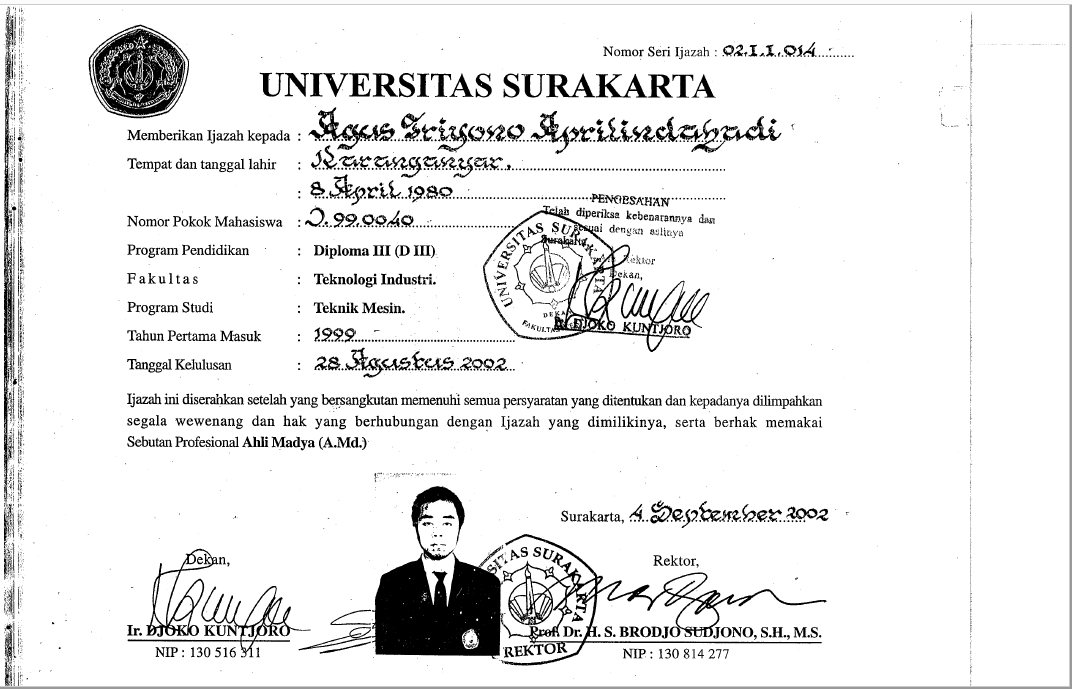 Nomor Seri Ijazah : 02.I.I.014
UNIVERSITAS SURAKARTA
Memberikan Ijazah kepada : Agus Triyono Aprilindahadi
Tempat dan tanggal lahir : Karanganyar.
: 8 April 1980
Nomor Pokok Mahasiswa : D.99.0040
Program Pendidikan : Diploma III (D III)
Fakultas : Teknologi Industri.
Program Studi : Teknik Mesin.
Tahun Pertama Masuk : 1999
Tanggal Kelulusan : 28 Agustus 2002
PENGESAHAN
Telah diperiksa kebenarannya dan
sesuai dengan aslinya
Surakarta,
Rektor
Dekan,
UNIVERSITAS SURAKARTA
DEKAN
FAKULTAS
Ir. DJOKO KUNTJORO
Ijazah ini diserahkan setelah yang bersangkutan memenuhi semua persyaratan yang ditentukan dan kepadanya dilimpahkan
segala wewenang dan hak yang berhubungan dengan Ijazah yang dimilikinya, serta berhak memakai
Sebutan Profesional Ahli Madya (A.Md.)
Surakarta, 4 September 2002
Dekan,
Rektor,
ITAS SURAKARTA
REKTOR
Ir. DJOKO KUNTJORO
NIP : 130 516 311
Prof. Dr. H. S. BRODJO SUDJONO, S.H., M.S.
NIP : 130 814 277